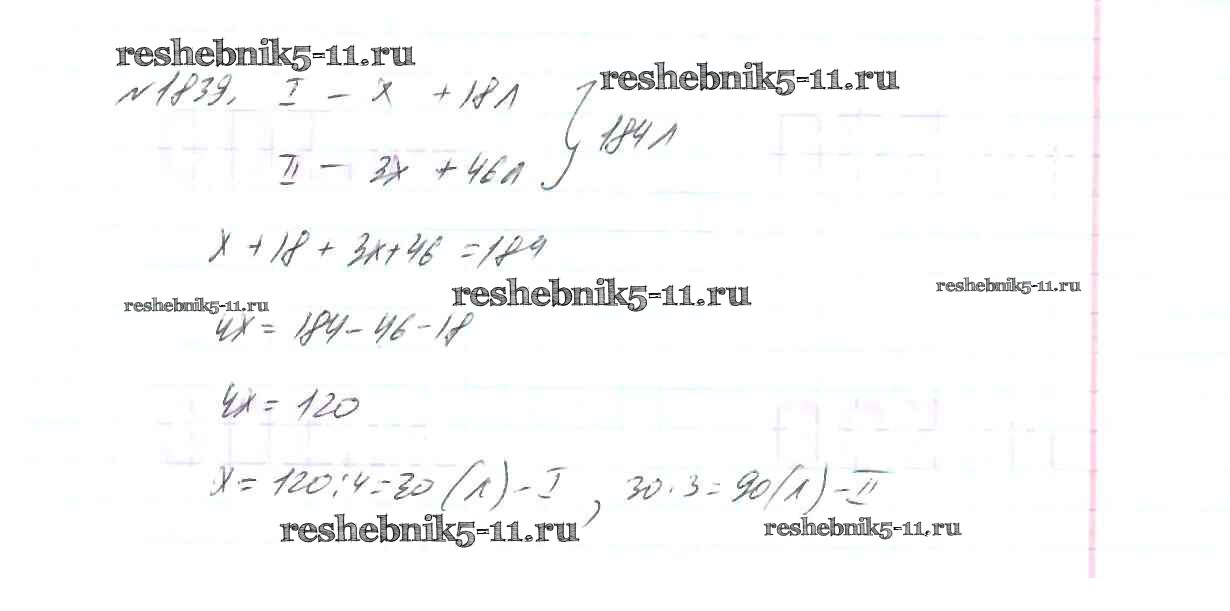 reshebnik5-11.ru
reshebnik5-11.ru
№1839. I - x + 18л
184л
II - 3x + 46л
x + 18 + 3x + 46 = 184
reshebnik5-11.ru
reshebnik5-11.ru
reshebnik5-11.ru
4x = 184 - 46 - 18
4x = 120
x = 120 : 4 = 30 (л) - I , 30 · 3 = 90 (л) - II
reshebnik5-11.ru
reshebnik5-11.ru